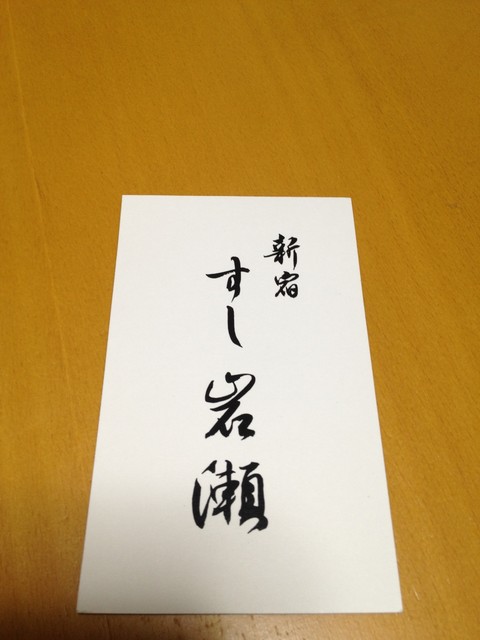 新宿
すし岩瀬